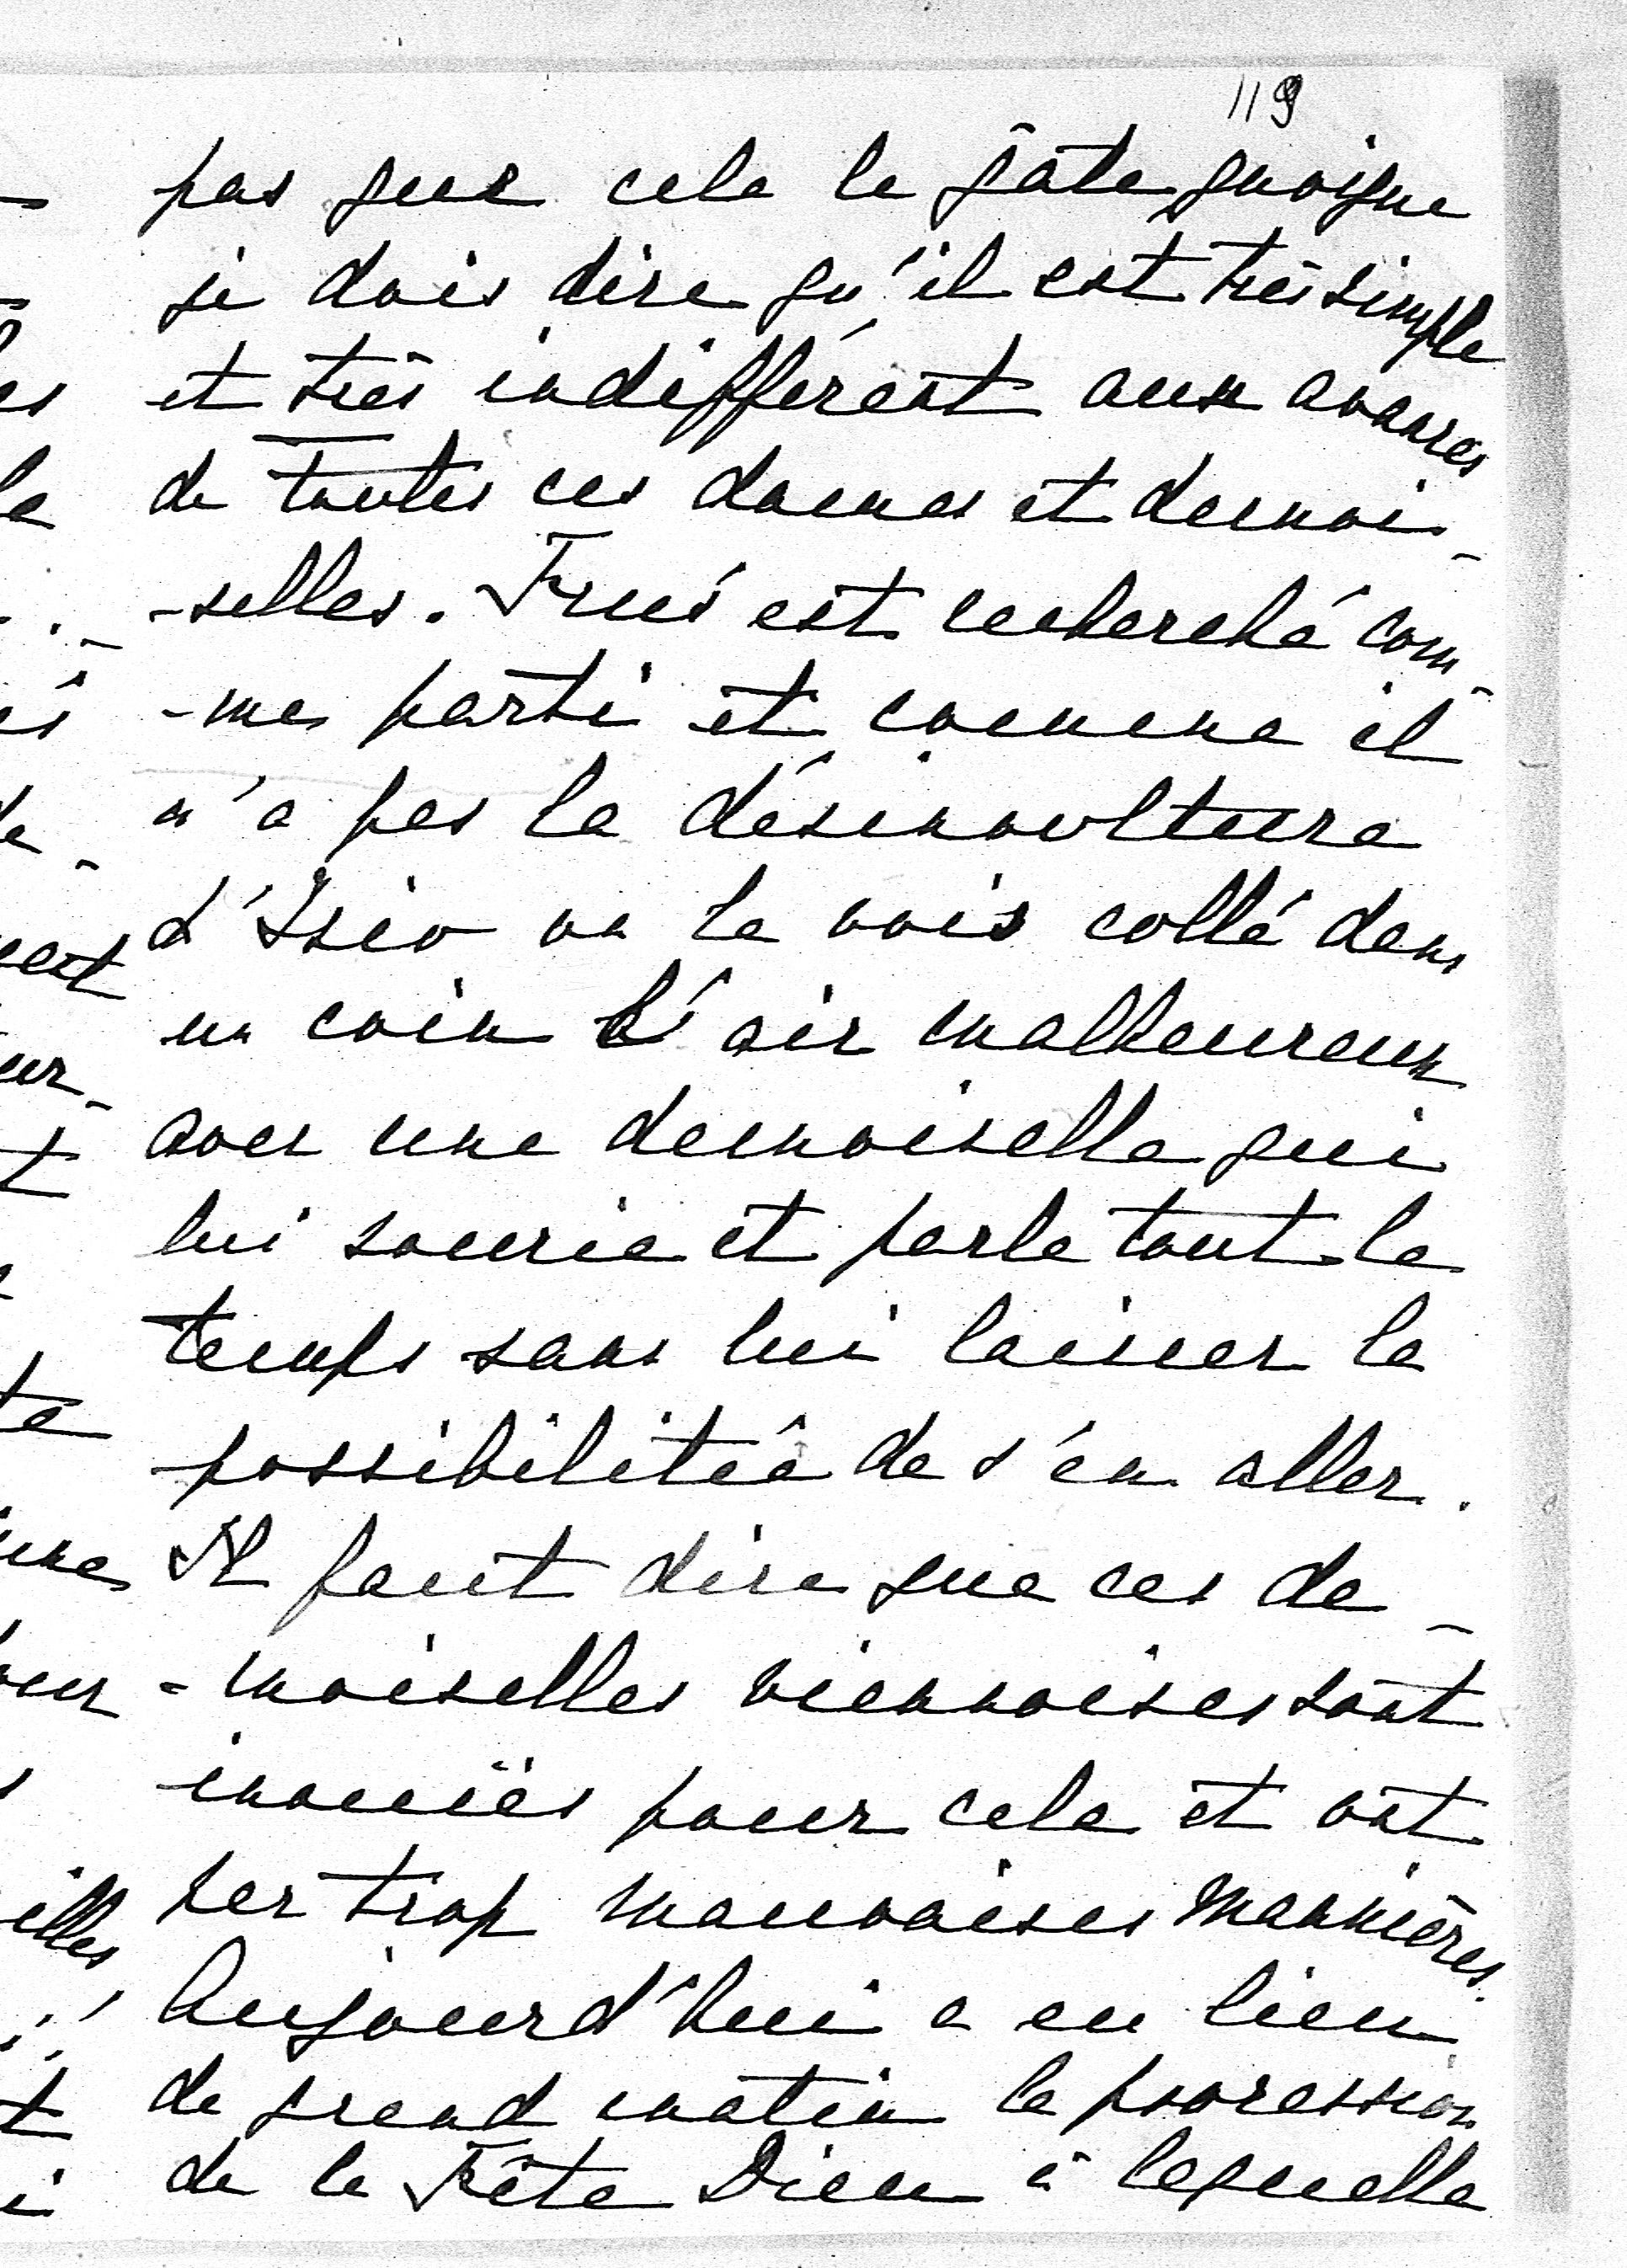 119
pas que cela le gâte quoique
je dois dire qu'il est très simple
et très indifférent aux avances
de toutes ces dames et demoi-
-selles. Frué est recherché com-
-me parti et comme il
n'a pas la désinvolture
d'Isio on le vois collé dans
un coin l'air malheureux
avec une demoiselle qui
lui sourie et parle tout le
temps sans lui laisser la
possibilitée de s'en aller.
Il faut dire que ces de-
-moiselles viennoises sont
inouïes pour cela et ont
per trop mauvaises mannières.
Aujourd'hui a eu lieu
de grand matin la procession
de la Fête Dieu à laquelle